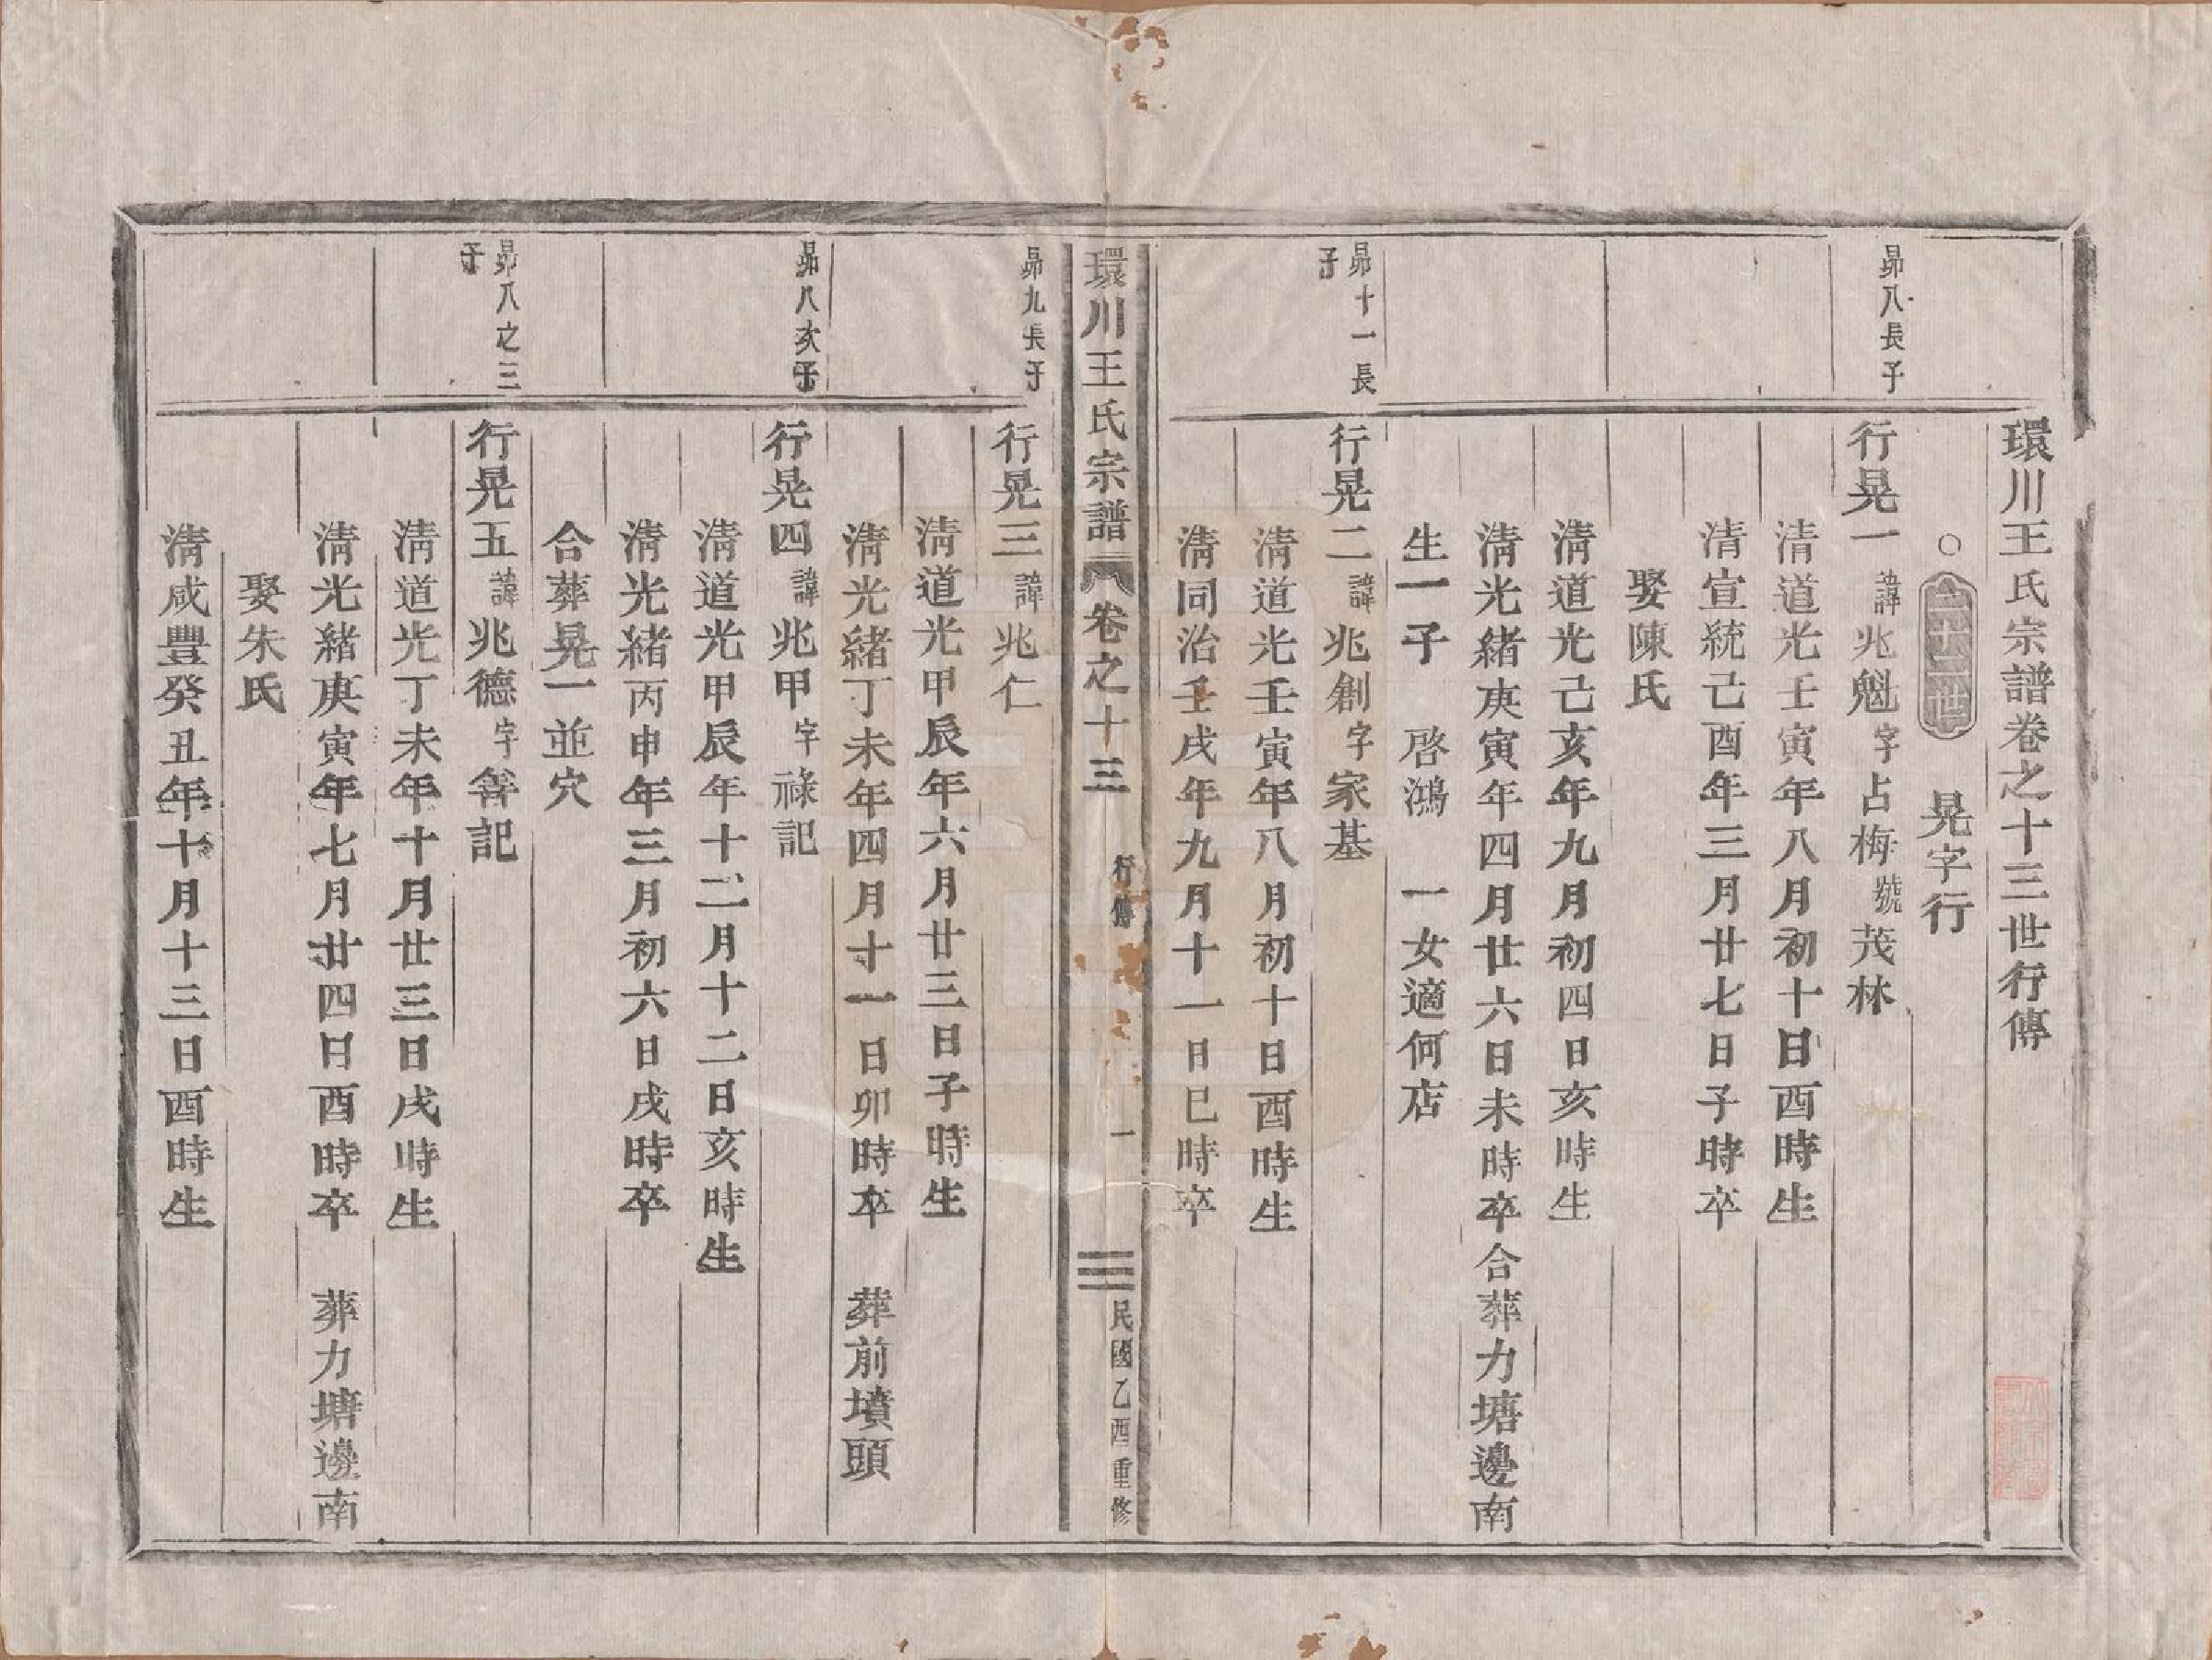 環川王氏宗譜卷之十三世行傳
○ 晃字行
昴八長子
行晃一諱兆魁字占梅號茂林
清道光壬寅年八月初十日酉時生
清宣統己酉年三月廿七日子時卒
娶陳氏
清道光己亥年九月初四日亥時生
清光緒庚寅年四月廿六日未時卒合葬力塘邊南
生一子 啓鴻 一女適何店
昴十一長子
行晃二諱兆創字家基
清道光壬寅年八月初十日酉時生
清同治壬戌年九月十一日巳時卒
環川王氏宗譜 卷之十三 行傳 一 民國乙酉重修
昴九長子
行晃三諱兆仁
清道光甲辰年六月廿三日子時生
清光緒丁未年四月十一日卯時卒 葬前墳頭
昴八次子
行晃四諱兆甲字祿記
清道光甲辰年十二月十二日亥時生
清光緒丙申年三月初六日戌時卒
合葬晃一並穴
昴八之三子
行晃五諱兆德字善記
清道光丁未年十月廿三日戌時生
清光緒庚寅年七月廿四日酉時卒 葬力塘邊南
娶朱氏
清咸豐癸丑年十月十三日酉時生